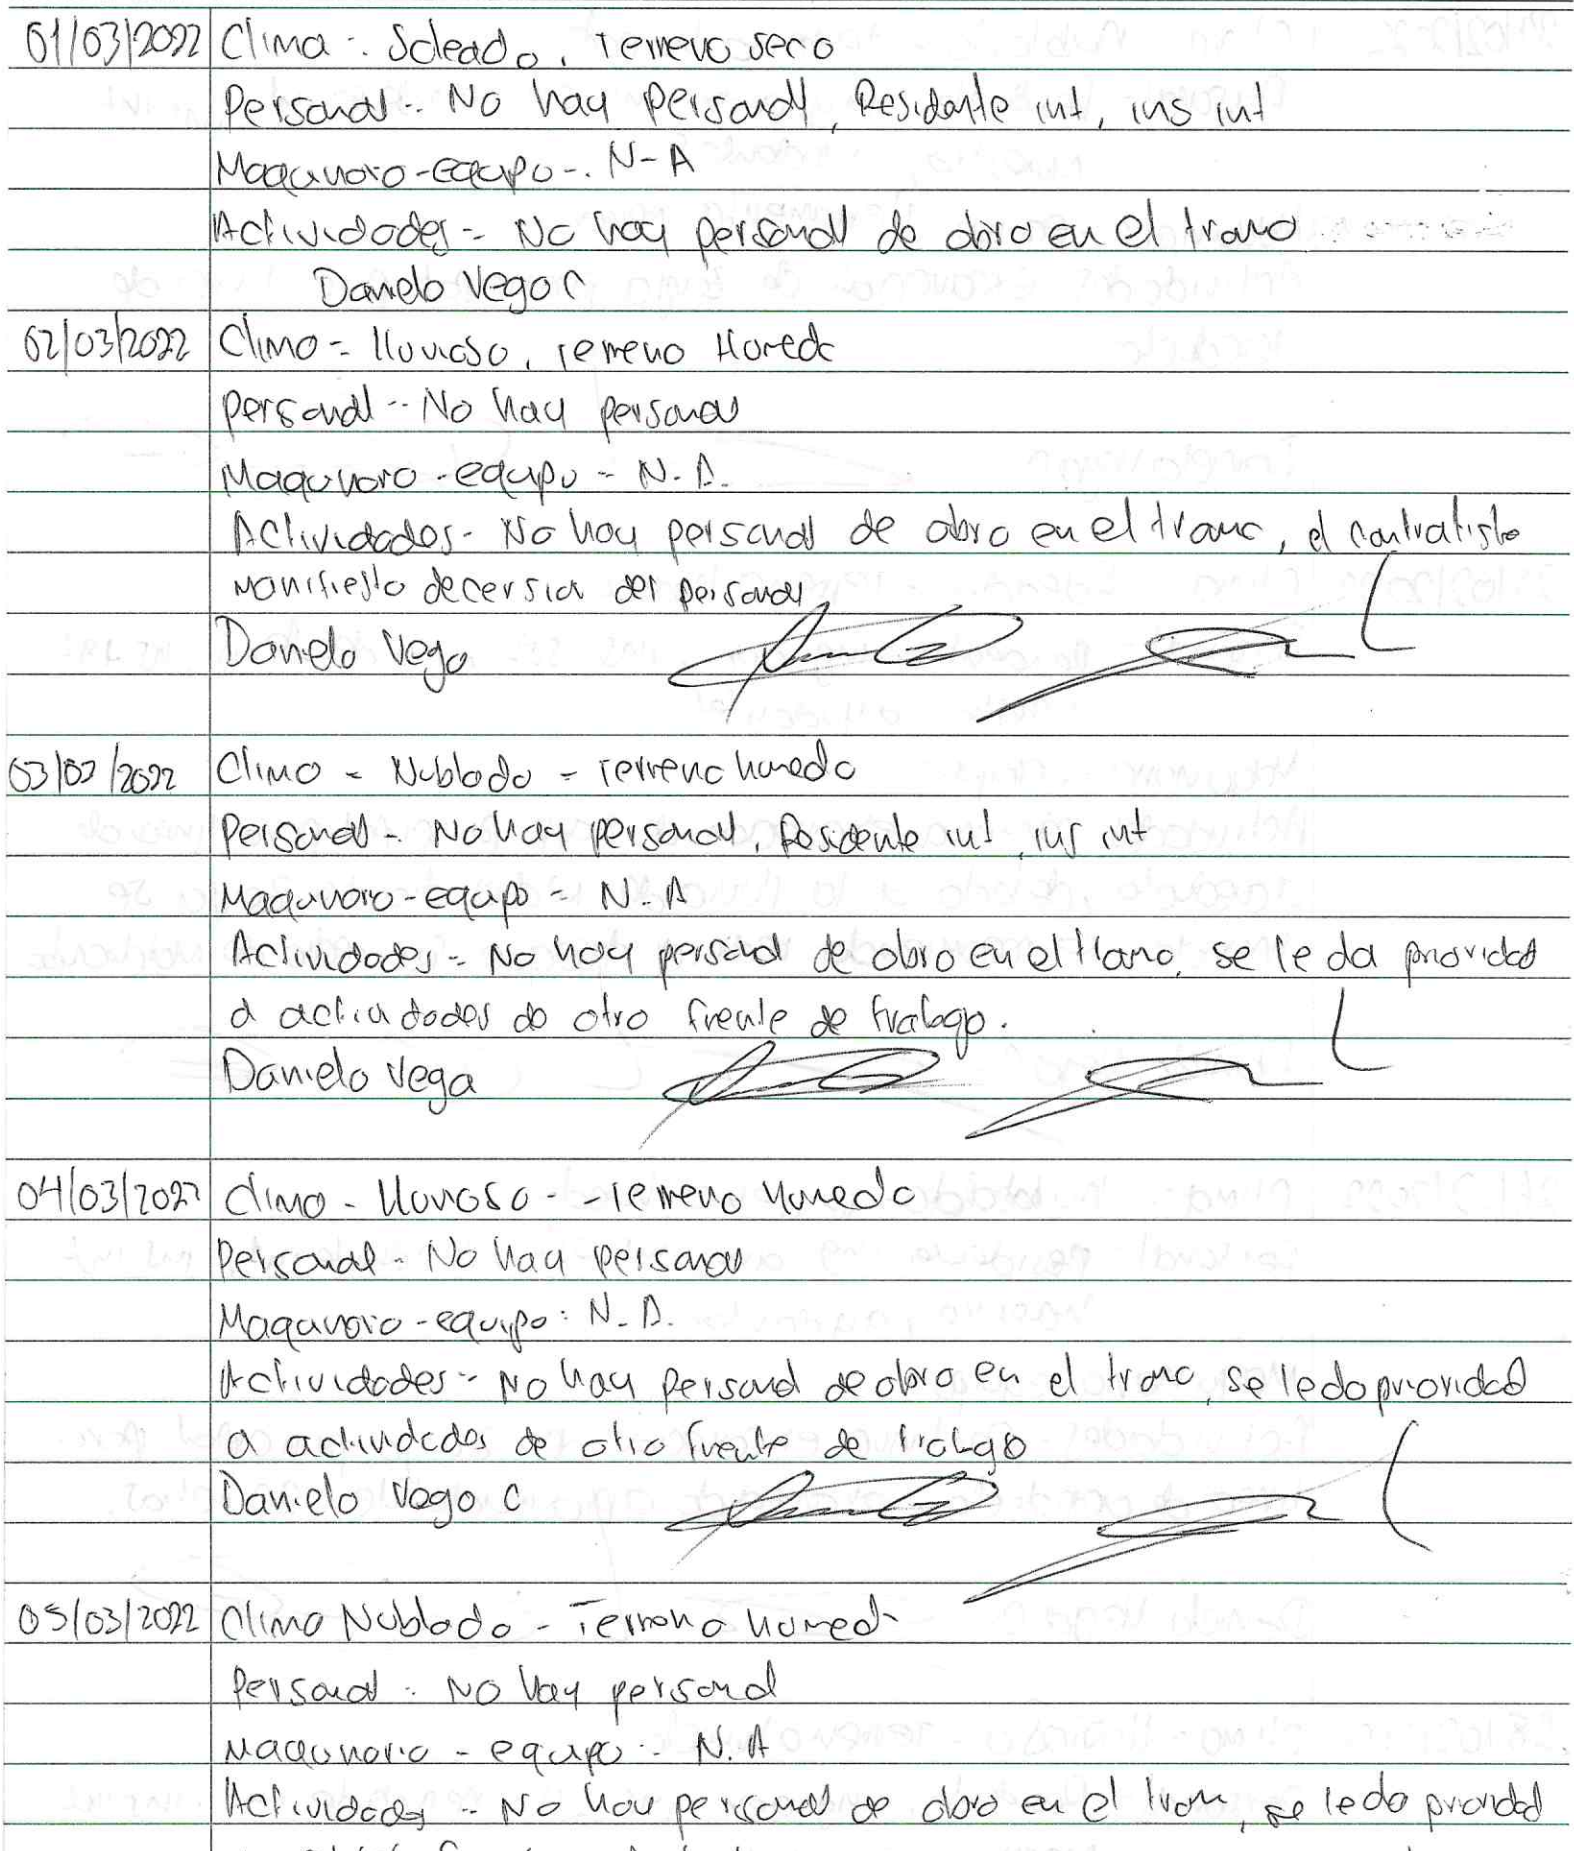 01/03/2022 Clima -. Soleado, Terreno seco
Personal -. No hay personal, Residente int, ins int
Maquinaria - equipo -. N-A
Actividades - No hay personal de obra en el tramo
Daniela Vega C
02/03/2022 Clima - lluvioso, terreno Humedo
personal -. No hay personal
Maquinaria - equipo - N.A.
Actividades - No hay personal de obra en el tramo, el contratista
manifiesta del personal
Daniela Vega
03/03/2022 Clima - Nublado - terreno humedo
Personal -. No hay personal, Residente int, ins int
Maquinaria - equipo - N.A
Actividades - No hay personal de obra en el tramo, se le da prioridad
a actividades de otro frente de trabajo.
Daniela Vega
04/03/2022 Clima - lluvioso - - terreno humedo
Personal - No hay personal
Maquinaria - equipo: N.A.
Actividades - No hay personal de obra en el tramo, se le da prioridad
a actividades de otro frente de trabajo
Daniela Vega C
05/03/2022 Clima Nublado - Terreno humedo
Personal -. No hay personal
Maquinaria - equipo -. N.A
Actividades - No hay personal de obra en el tram, se le da prioridad